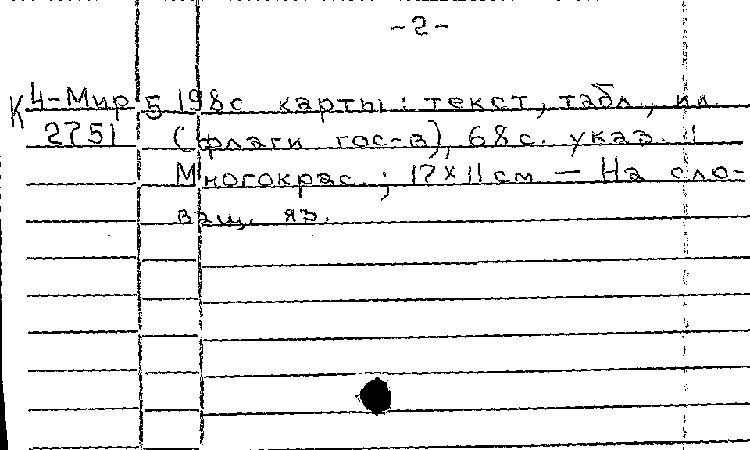 -2-
К 4-Мир 5 198с карты: текст, табл., ил.
2751 (флаги гос-в), 68с. указ. ;
Многокрас. ; 17×11см — На сло-
вац. яз.